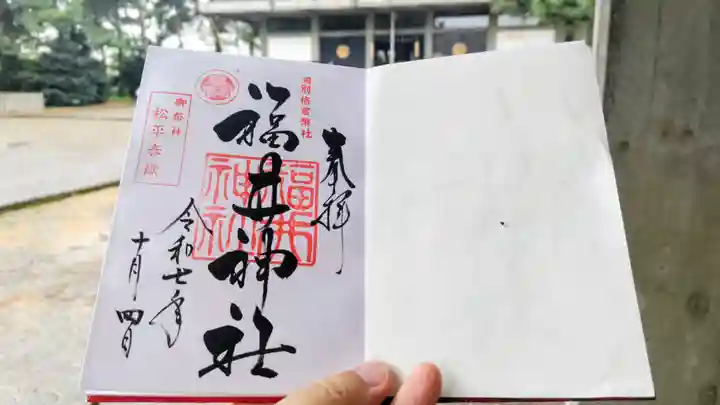 旧別格官幣社
奉拝
福井神社
福井神社
令和七年
十月四日
御祭神
松平春嶽